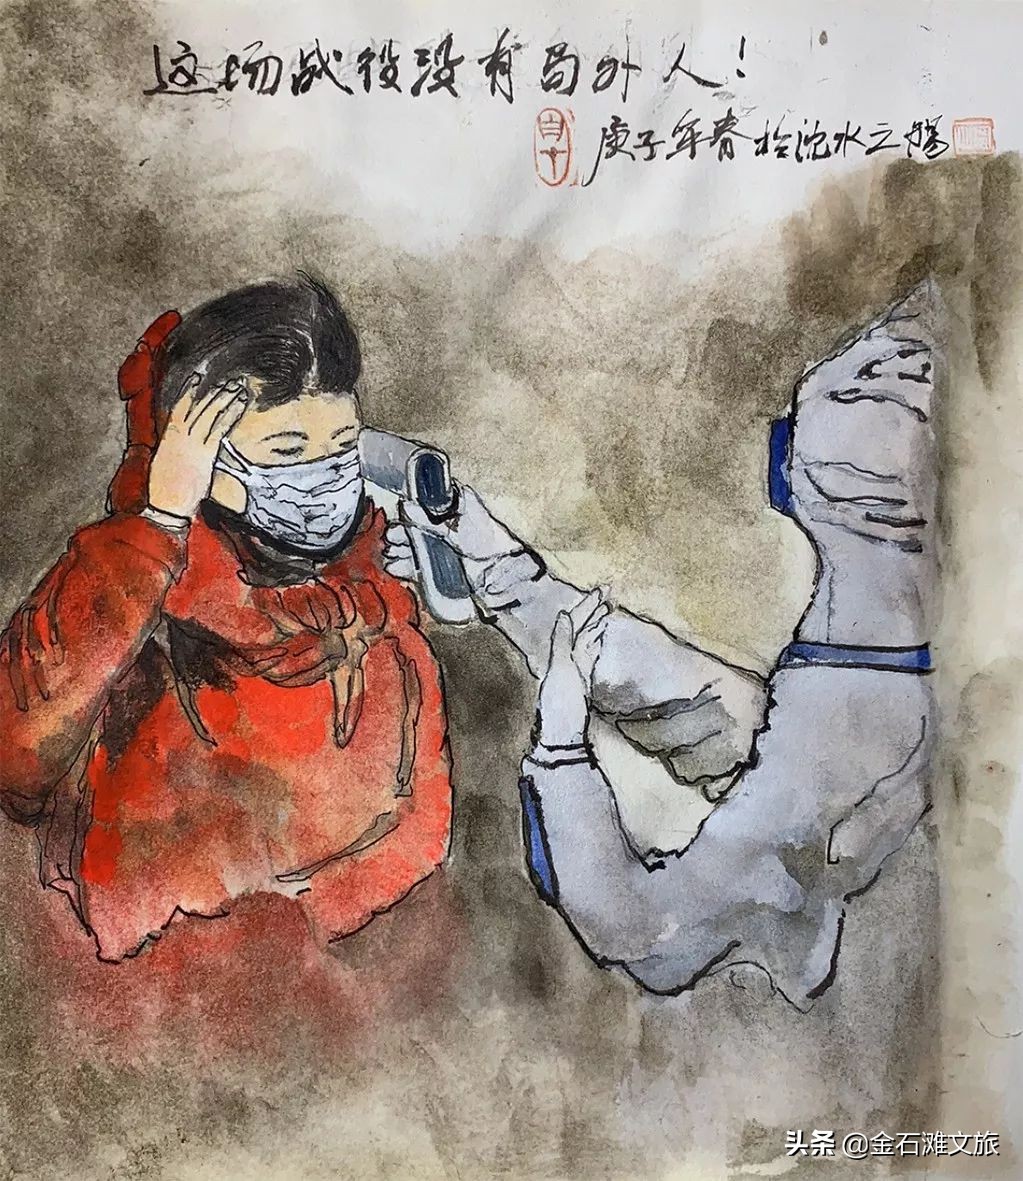 这场战役没有局外人！
庚子年春于沈水之阳
头条 @金石滩文旅